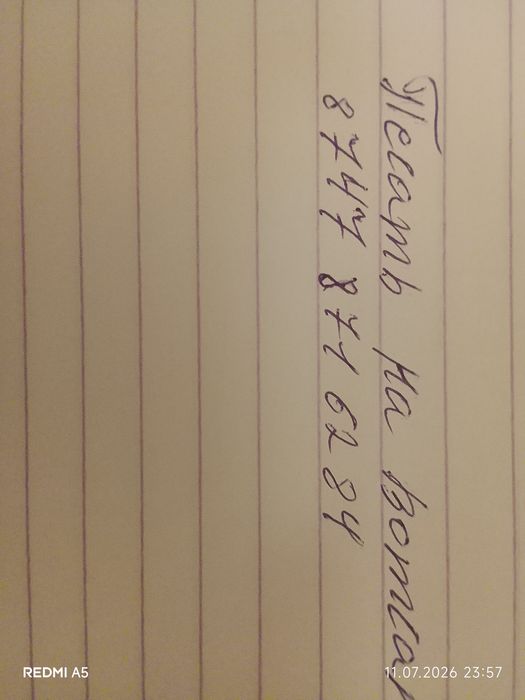 Песать на вотса
8 747 871 62 84
REDMI A5
11.07.2026 23:57